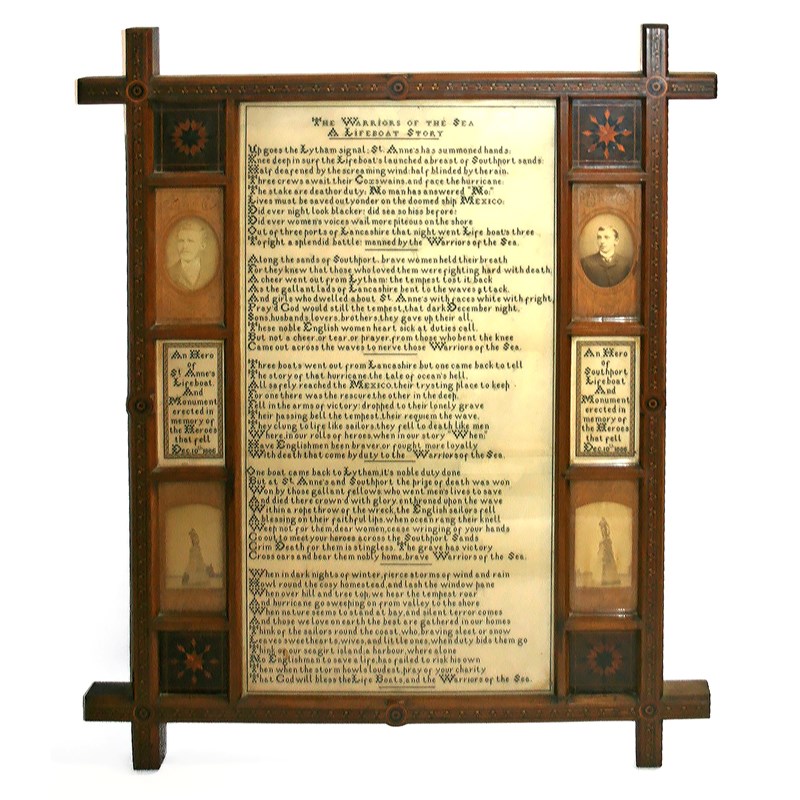 The Warriors of the Sea
A Lifeboat Story
Up goes the Lytham signal; St. Anne's has summoned hands;
Knee deep in surf the Lifeboat's launched abreast of Southport sands:
Half deafened by the screaming wind: half blinded by the rain.
Three crews await their Coxswains, and face the hurricane.
The stake are death or duty: No man has answered "No."
Lives must be saved out yonder on the doomed ship Mexico:
Did ever night look blacker: did sea so hiss before:
Did ever women's voices wail more piteous on the shore
Out of three ports of Lancashire that night went Life boats three
To fight a splendid battle: manned by the Warriors of the Sea.
Along the sands of Southport, brave women held their breath
For they knew that those who loved them were fighting hard with death;
A cheer went out from Lytham: the tempest tost it back
As the gallant lads of Lancashire bent to the waves attack.
And girls who dwelled about St. Anne's with faces white with fright,
Pray'd God would still the tempest, that dark December night,
Sons, husbands, lovers, brothers, they gave up their all,
These noble English women heart sick at duties call,
But not a cheer, or tear, or prayer, from those who bent the knee
Came out across the waves to nerve those Warriors of the Sea.
Three boats went out from Lancashire but one came back to tell
The story of that hurricane, the tale of ocean's hell,
All safely reached the Mexico, their trysting place to keep
For one there was the rescure, the other in the deep,
Fell in the arms of victory: dropped to their lonely grave
Their passing bell the tempest, their requiem the wave,
They clung to life like sailors, they fell to death like men
Where, in our rolls of heroes, when in our story "When"
Have Englishmen been braver, or fought more loyally
With death that come by duty to the Warriors of the Sea.
One boat came back to Lytham, it's noble duty done
But at St. Anne's and Southport the prize of death was won
Won by those gallant fellows, who went men's lives to save
And died there crown'd with glory, enthroned upon the wave
Within a rope throw of the wreck, the English sailors fell
A blessing on their faithful lips, when ocean rang their knell
Weep not for them, dear women, cease wringing of your hands
Go out to meet your heroes across the Southport Sands
Grim Death for them is stingless, The grave has victory
Cross oars and bear them nobly home, brave Warriors of the Sea.
When in dark nights of winter, fierce storms of wind and rain
Howl round the cosy homestead, and lash the window pane
When over hill and tree top, we hear the tempest roar
And hurricane go sweeping on from valley to the shore
When nature seems to stand at bay, and silent terror comes
And those we love on earth the best are gathered in our homes
Think of the sailors round the coast, who, braving sleet or snow
Leaves sweethearts, wives, and little ones, when duty bids them go
Think of our sea girt island; a harbour, where alone
No Englishman to save a life, has failed to risk his own
Then when the storm howls loudest, pray of your charity
That God will bless the Life Boats, and the Warriors of the Sea.
An Hero
of
St Anne's
Lifeboat.
And
Monument
erected in
memory of
the Heroes
that fell
Dec. 10th 1886
An Hero
of
Southport
Lifeboat
And
Monument
erected in
memory of
the Heroes
that fell
Dec. 10th 1886